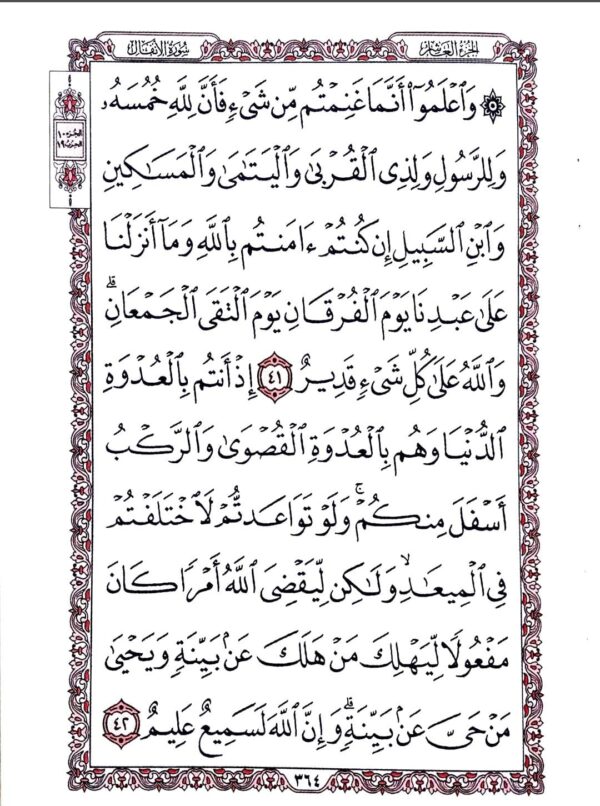 الجزء العاشر
سورة الأنفال
الجزء ١٠
الحزب ١٩
۞ وَٱعْلَمُوٓا۟ أَنَّمَا غَنِمْتُم مِّن شَىْءٍ فَأَنَّ لِلَّهِ خُمُسَهُۥ
وَلِلرَّسُولِ وَلِذِى ٱلْقُرْبَىٰ وَٱلْيَتَٰمَىٰ وَٱلْمَسَٰكِينِ
وَٱبْنِ ٱلسَّبِيلِ إِن كُنتُمْ ءَامَنتُم بِٱللَّهِ وَمَآ أَنزَلْنَا
عَلَىٰ عَبْدِنَا يَوْمَ ٱلْفُرْقَانِ يَوْمَ ٱلْتَقَى ٱلْجَمْعَانِ ۗ
وَٱللَّهُ عَلَىٰ كُلِّ شَىْءٍ قَدِيرٌ ٤١ إِذْ أَنتُم بِٱلْعُدْوَةِ
ٱلدُّنْيَا وَهُم بِٱلْعُدْوَةِ ٱلْقُصْوَىٰ وَٱلرَّكْبُ
أَسْفَلَ مِنكُمْ ۚ وَلَوْ تَوَاعَدتُّمْ لَٱخْتَلَفْتُمْ
فِى ٱلْمِيعَٰدِ ۙ وَلَٰكِن لِّيَقْضِىَ ٱللَّهُ أَمْرًا كَانَ
مَفْعُولًا لِّيَهْلِكَ مَنْ هَلَكَ عَنۢ بَيِّنَةٍ وَيَحْيَىٰ
مَنْ حَىَّ عَنۢ بَيِّنَةٍ ۗ وَإِنَّ ٱللَّهَ لَسَمِيعٌ عَلِيمٌ ٤٢
٣٦٤